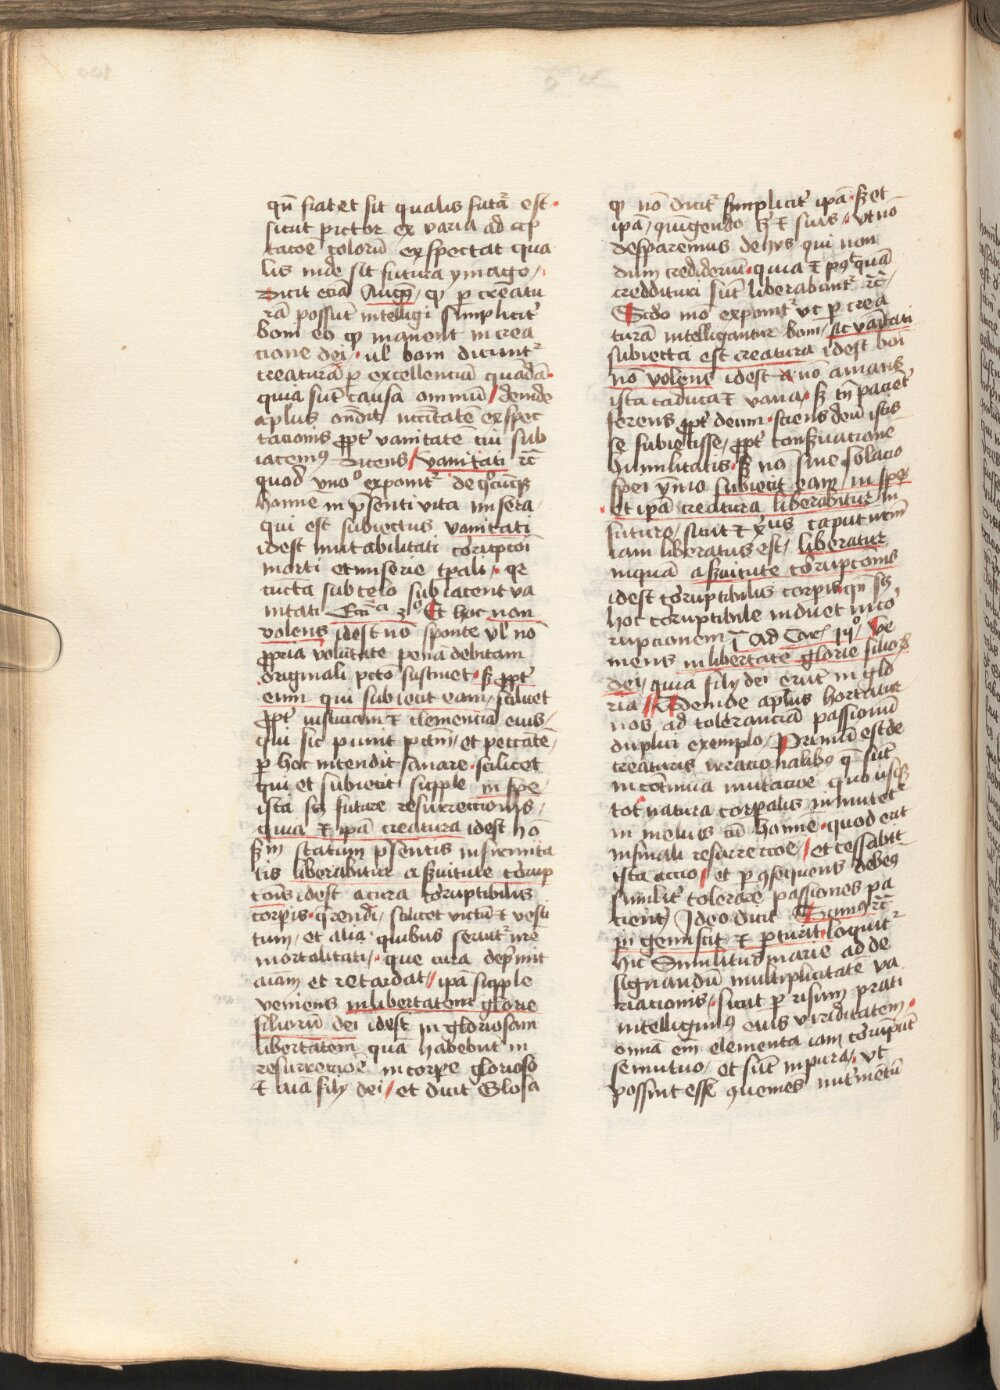 qn̄ fiat et sit qualis futā est
sicut pictor ex varia ad cep
tacōe colorū exspectat qua
lis inde sit futura ymago
Dicit eciā Augꝰ ꝙ ꝑ creatu
rā possūt intelligi simplicit᷑
boni eo ꝙ manent in crea
cione dei ul̓ boni dicunt᷑
creatura ꝑ excellenciā quādā
quia sūt causa omniū deinde
aplūs ondit nccītatem exspec
tacionis ꝓpt᷑ vanitatē cui sub
iacemꝰ dicens vanitati rc̄
quod vno° exponit᷑ de qocūqꝫ
homīe in p̄senti vita misera
qui est subiectus vanitati
idest mutabilitati corupcoi
morti et miserie tp̄ali qr
cūcta sub celo subiacent va
nitati Ecc̄ᵃ 3° Et hoc non
volens idest nō sponte ul̓ nō
ꝓpria volūtate penā debitam
originali pctō sustinet sꝫ ꝓpt᷑
eum qui subiecit eam scilicet
ꝓpt᷑ iusticiam ⁊ clemenciā eius
qui sic punit pctm̄ et peccātē
ꝑ hoc intendit sanare scilicet
qui et subiecit supple in spe
ista scꝫ future resurreccionis
quia ⁊ ipā creatura idest hō
sꝫm statum p̄sentis infirmita
tis liberabitur a ẜuitute corup
cōis idest a cura coruptibilis
corpis q̄rendi scilicet victū ⁊ vesti
tum et alia quibus seruit᷑ īrē
mortalitati que cura dep̄mit
aīam et retardat ipā supple
veniens in libertatem glorie
filiorū dei idest in gloriosam
libertatem quā habebūt in
resurreccōe in corpe glorioso
⁊ aīa filij dei et dicit Glosa
ꝙ nō dicit᷑ simplicit᷑ ipā sꝫ et
ipā quigendo hꝫ ⁊ suis vt nō
desparemus de hijs qui non
dum crediderūt quia ⁊ pꝰt quā
creddituri sūt liberabunt᷑ rc̄
Scdo mō exponit᷑ vt ꝑ crea
turā intelligantur boni sic vanitati
subiecta est creatura idest boi
nō volens idest nō amans
ista caduca ⁊ vana sꝫ tn̄ pacient᷑
ferens ꝓpt᷑ deum sciens deū istis
se subiecisse ꝓpt᷑ conẜuacionē
humilitatis sꝫ nō sine solacio
spei ymo subiecit eam in spe
et ipā creatura liberabitur in
futuro sicut ⁊ xp̄us caput nr̄m
iam liberatus est liberatur
inquā a ẜuitute corupcōnis
idest coruptibilis corpis qn̄ scꝫ
hoc coruptibile induet inco
rupcionem j ad Cor xv° Ve
niens in libertatē glorie filioꝝ
dei quia filij dei erūt in glō
ria Deinde aplūs hortatur
nos ad toleranciā passionū
duplici exemplo Primū est de
creaturis irracionalibꝰ q̄ sūt
in cōtinua mutacōe quousqꝫ
tot natura corpalis inmutet᷑
in melius cū homīe quod erit
in finali resurreccōe et cessabit
ista accio et ꝑ ꝯsequens debeꝰ
similit᷑ tolerare passiones pa
tient᷑ Ideo dicit Scimꝰ rc̄
ꝑ gemiscit ⁊ ꝑturit loquit᷑
hic Similitudinarie ad de
signandū multiplicitatē va
riacionis sicut ꝑ risum prati
intelligimꝰ eius viriditatem
omīa em̄ elementa iam corūpūt
se mutuo et sūt inpura vt
possint esse ꝯuenies nut᷑mētū